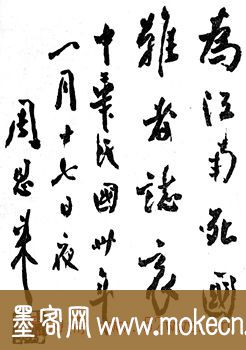 為江南死國
難者誌哀
中華民國卅年
一月十七日夜
周恩来
墨客网 www.mokecn.